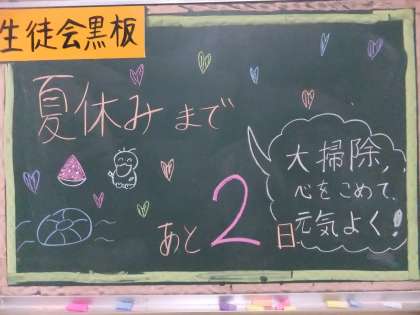 生徒会黒板
夏休みまで
あと2日
大掃除,
心をこめて、
元気よく!